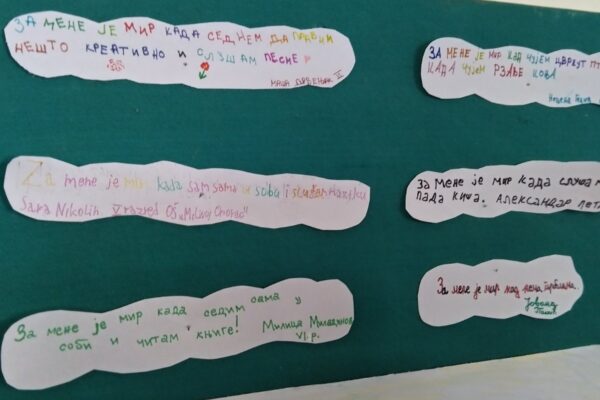 ЗА МЕНЕ ЈЕ МИР КАДА СЕДНЕМ ДА ПРАВИМ
НЕШТО КРЕАТИВНО И СЛУШАМ ПЕСМЕ
МАША
ЗА МЕНЕ ЈЕ МИР КАД ЧУЈЕМ ЦВРКУТ
КАДА ЧУЈЕМ РЗАЊЕ КОЊА
Za mene je mir kada sam sama u sobi i slušam muziku
Sara Nikolić V razred OŠ
За мене је мир када слуша
пада киша. Александар
За мене је мир када седим сама у
соби и читам књиге! Милица
VI р.
За мене је мир кад нема
Јована